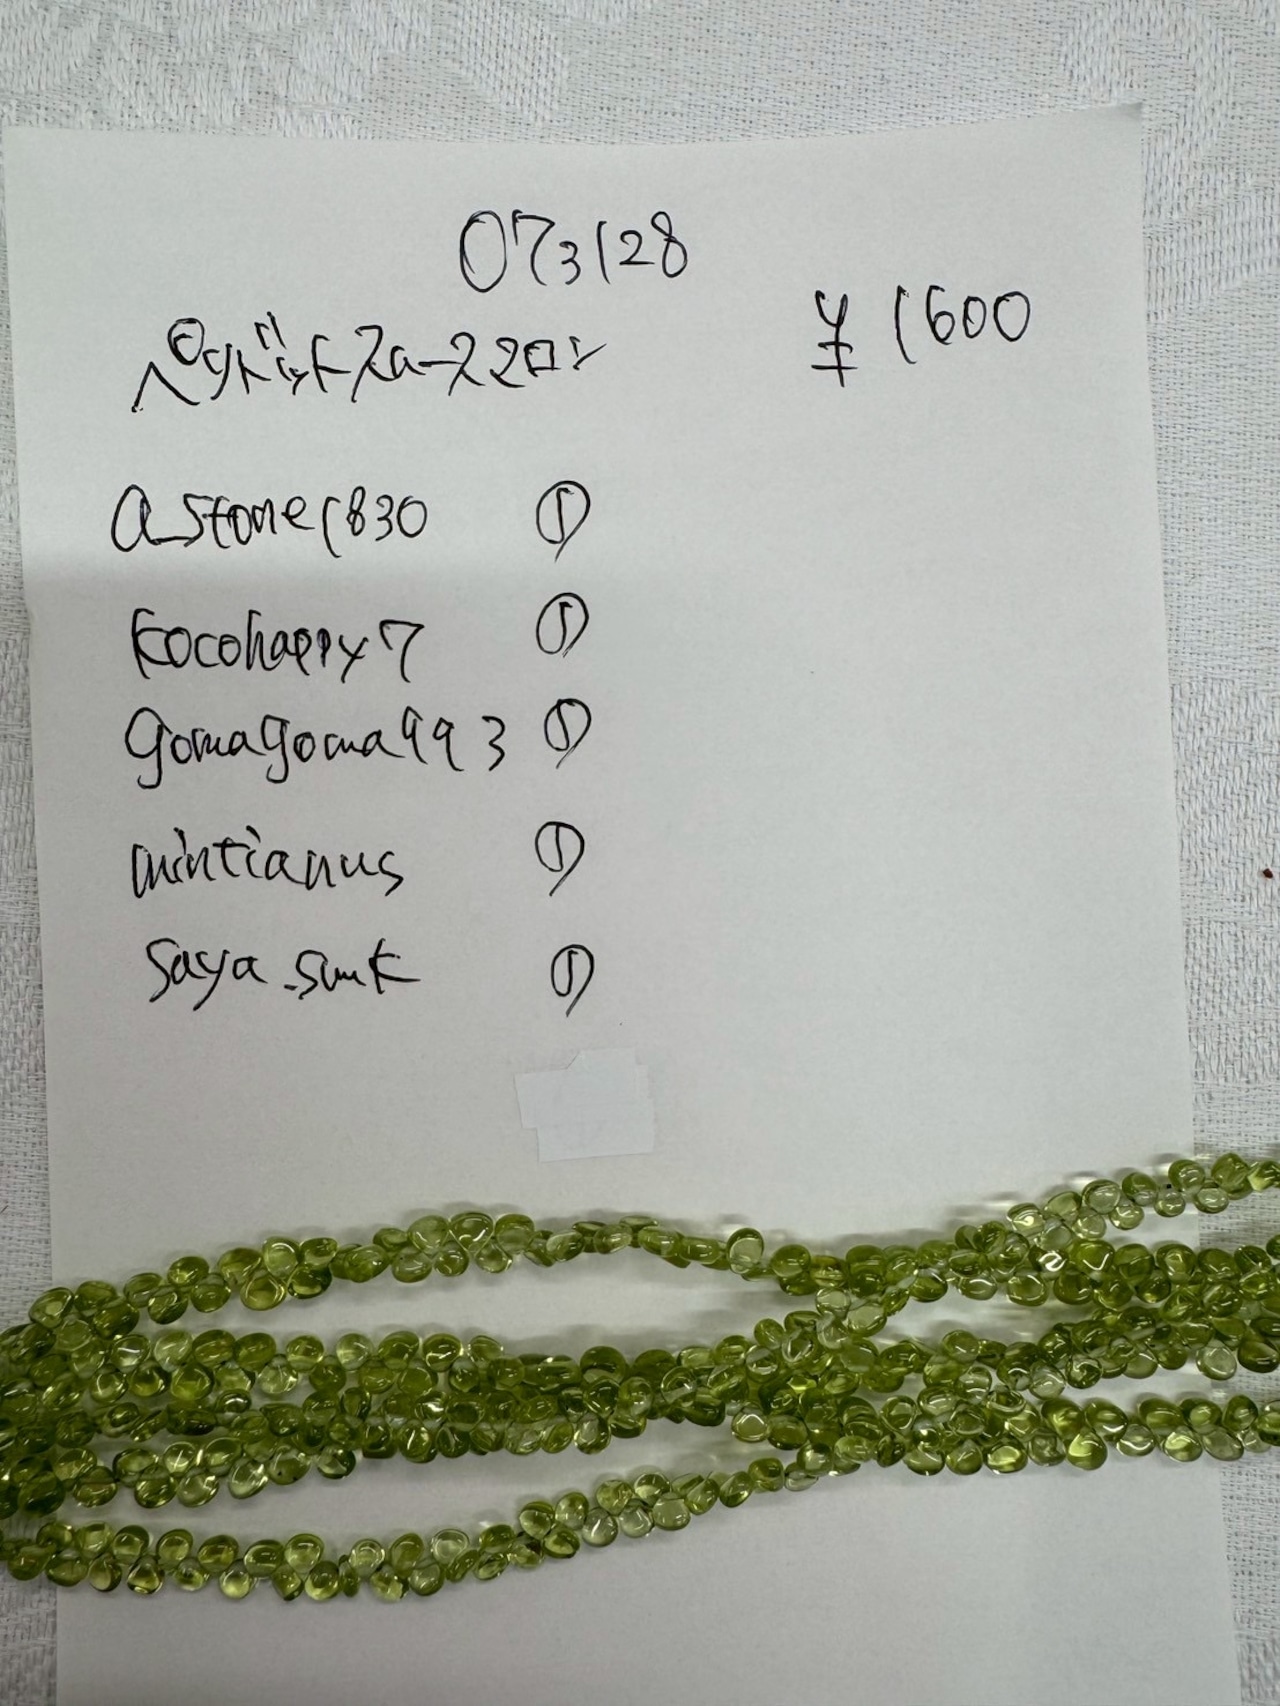 073128
¥1600
ペリドットスムースマロン
a_stone1830 ①
kocohappy7 ①
gomagoma993 ①
mintianus ①
saya._sunk ①